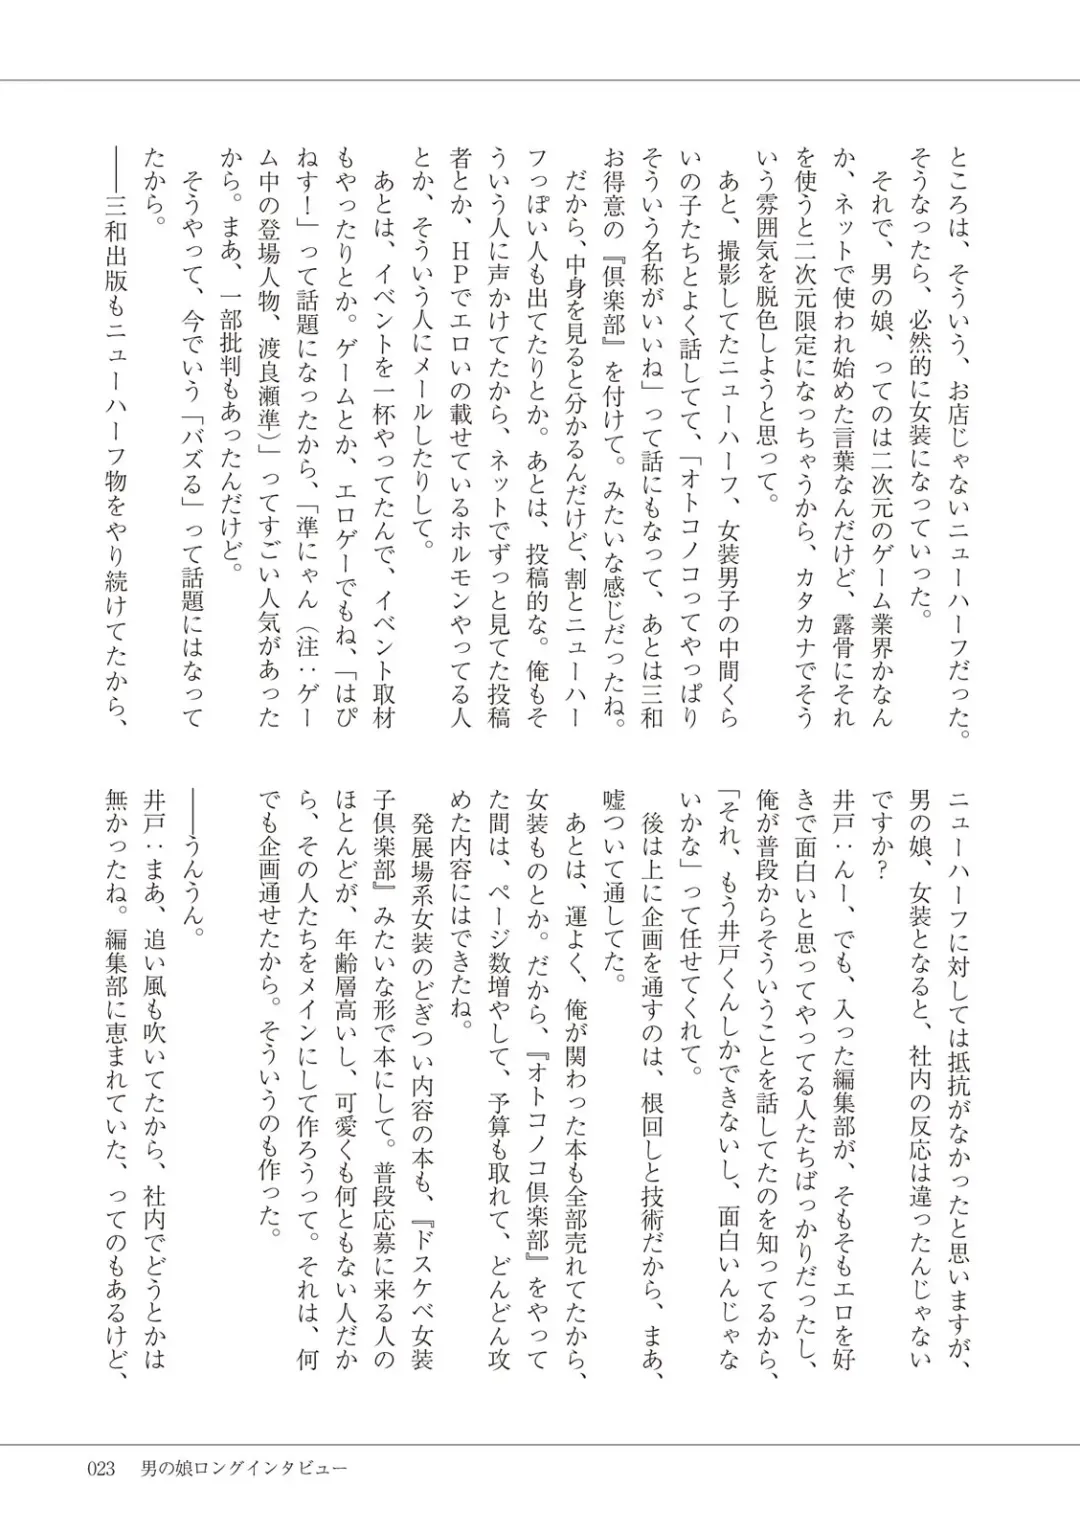 ところは、そういう、お店じゃないニューハーフだった。
そうなったら、必然的に女装になっていった。
それで、男の娘、ってのは二次元のゲーム業界かなん
か、ネットで使われ始めた言葉なんだけど、露骨にそれ
を使うと二次元限定になっちゃうから、カタカナでそう
いう雰囲気を脱色しようと思って。
あと、撮影してたニューハーフ、女装男子の中間くら
いの子たちとよく話してて、「オトコノコってやっぱり
そういう名称がいいね」って話にもなって、あとは三和
お得意の『倶楽部』を付けて。みたいな感じだったね。
だから、中身を見ると分かるんだけど、割とニューハー
フっぽい人も出てたりとか。あとは、投稿的な。俺もそ
ういう人に声かけてたから、ネットでずっと見てた投稿
者とか、HPでエロいの載せているホルモンやってる人
とか、そういう人にメールしたりして。
あとは、イベントを一杯やってたんで、イベント取材
もやったりとか。ゲームとか、エロゲーでもね、「はぴ
ねす！」って話題になったから、「準にゃん（注：ゲー
ム中の登場人物、渡良瀬準）」ってすごい人気があった
から。まあ、一部批判もあったんだけど。
そうやって、今でいう「バズる」って話題にはなって
たから。
――三和出版もニューハーフ物をやり続けてたから、
ニューハーフに対しては抵抗がなかったと思いますが、
男の娘、女装となると、社内の反応は違ったんじゃない
ですか？
井戸：んー、でも、入った編集部が、そもそもエロを好
きで面白いと思ってやってる人たちばっかりだったし、
俺が普段からそういうことを話してたのを知ってるから、
「それ、もう井戸くんしかできないし、面白いんじゃな
いかな」って任せてくれて。
後は上に企画を通すのは、根回しと技術だから、まあ、
嘘ついて通してた。
あとは、運よく、俺が関わった本も全部売れてたから、
女装ものとか。だから、『オトコノコ倶楽部』をやって
た間は、ページ数増やして、予算も取れて、どんどん攻
めた内容にはできたね。
発展場系女装のどぎつい内容の本も、『ドスケベ女装
子倶楽部』みたいな形で本にして。普段応募に来る人の
ほとんどが、年齢層高いし、可愛くも何ともない人だか
ら、その人たちをメインにして作ろうって。それは、何
でも企画通せたから。そういうのも作った。
――うんうん。
井戸：まあ、追い風も吹いてたから、社内でどうとかは
無かったね。編集部に恵まれていた、ってのもあるけど、
023 男の娘ロングインタビュー